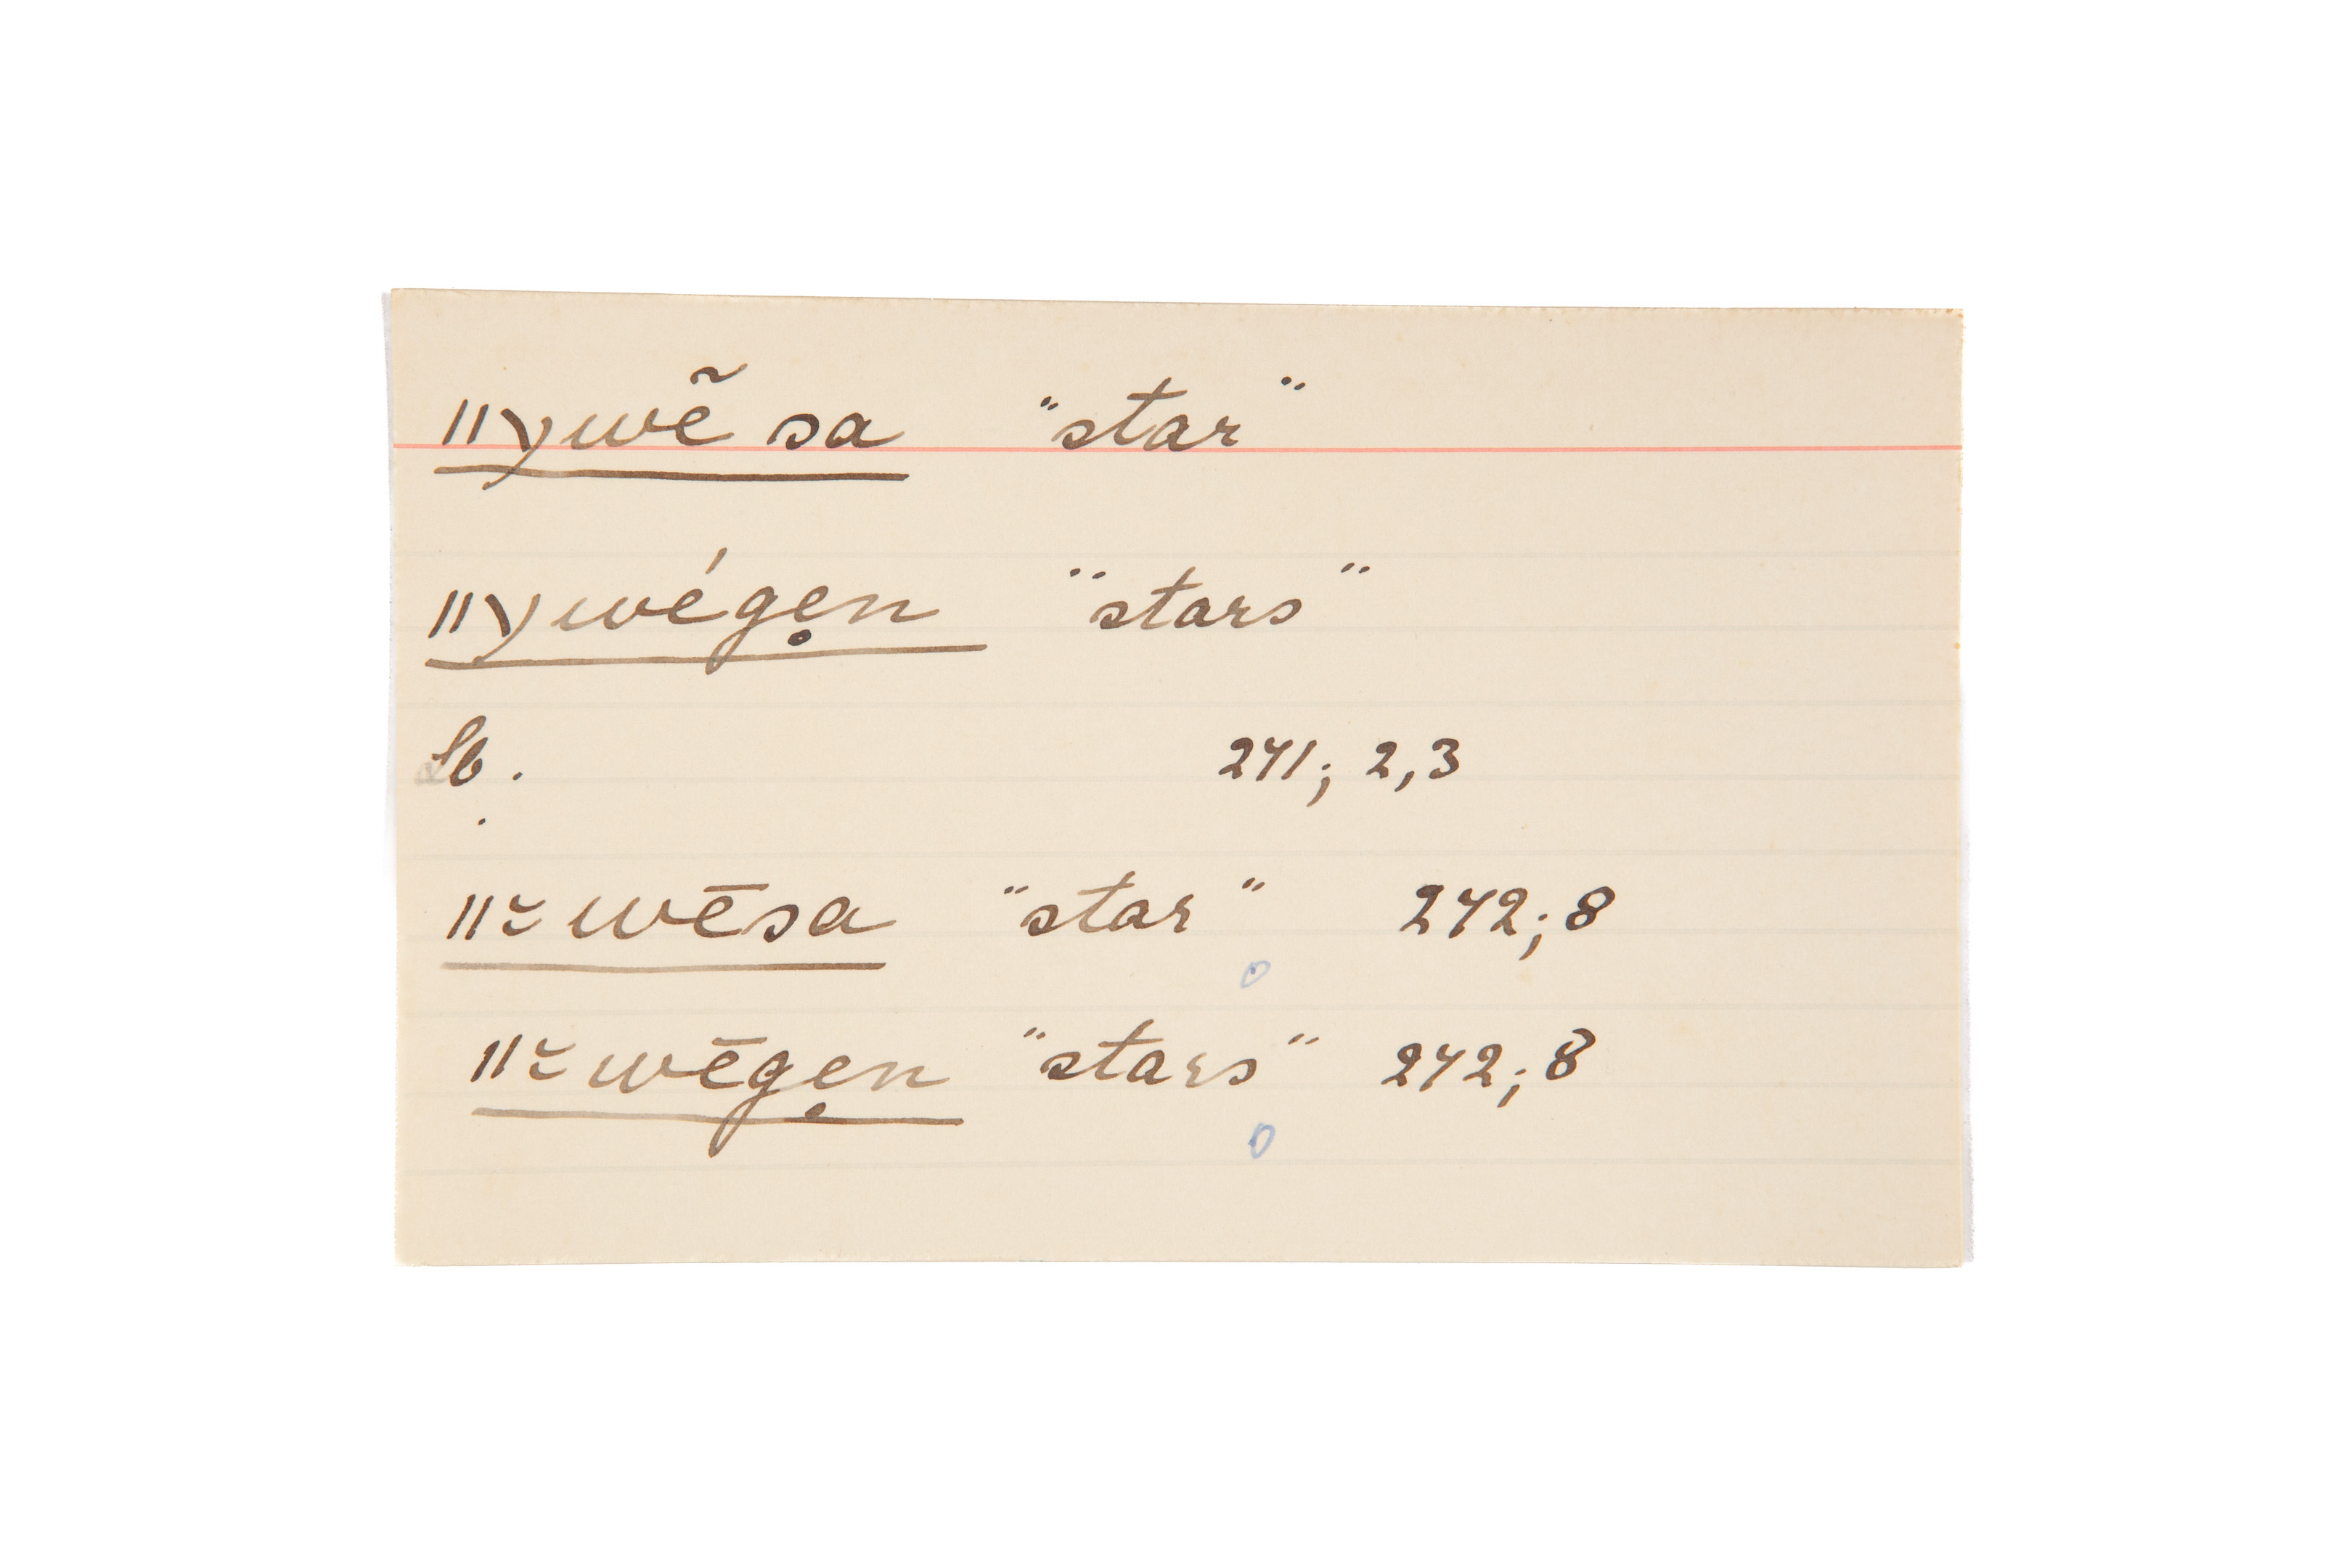 ǁχwẽ sa "star"
ǁχwégẹn "stars"
Lb. 241; 2,3
ǁ˘wēsa "star" 242; 8
ǁ˘wēgẹn "stars" 242; 8